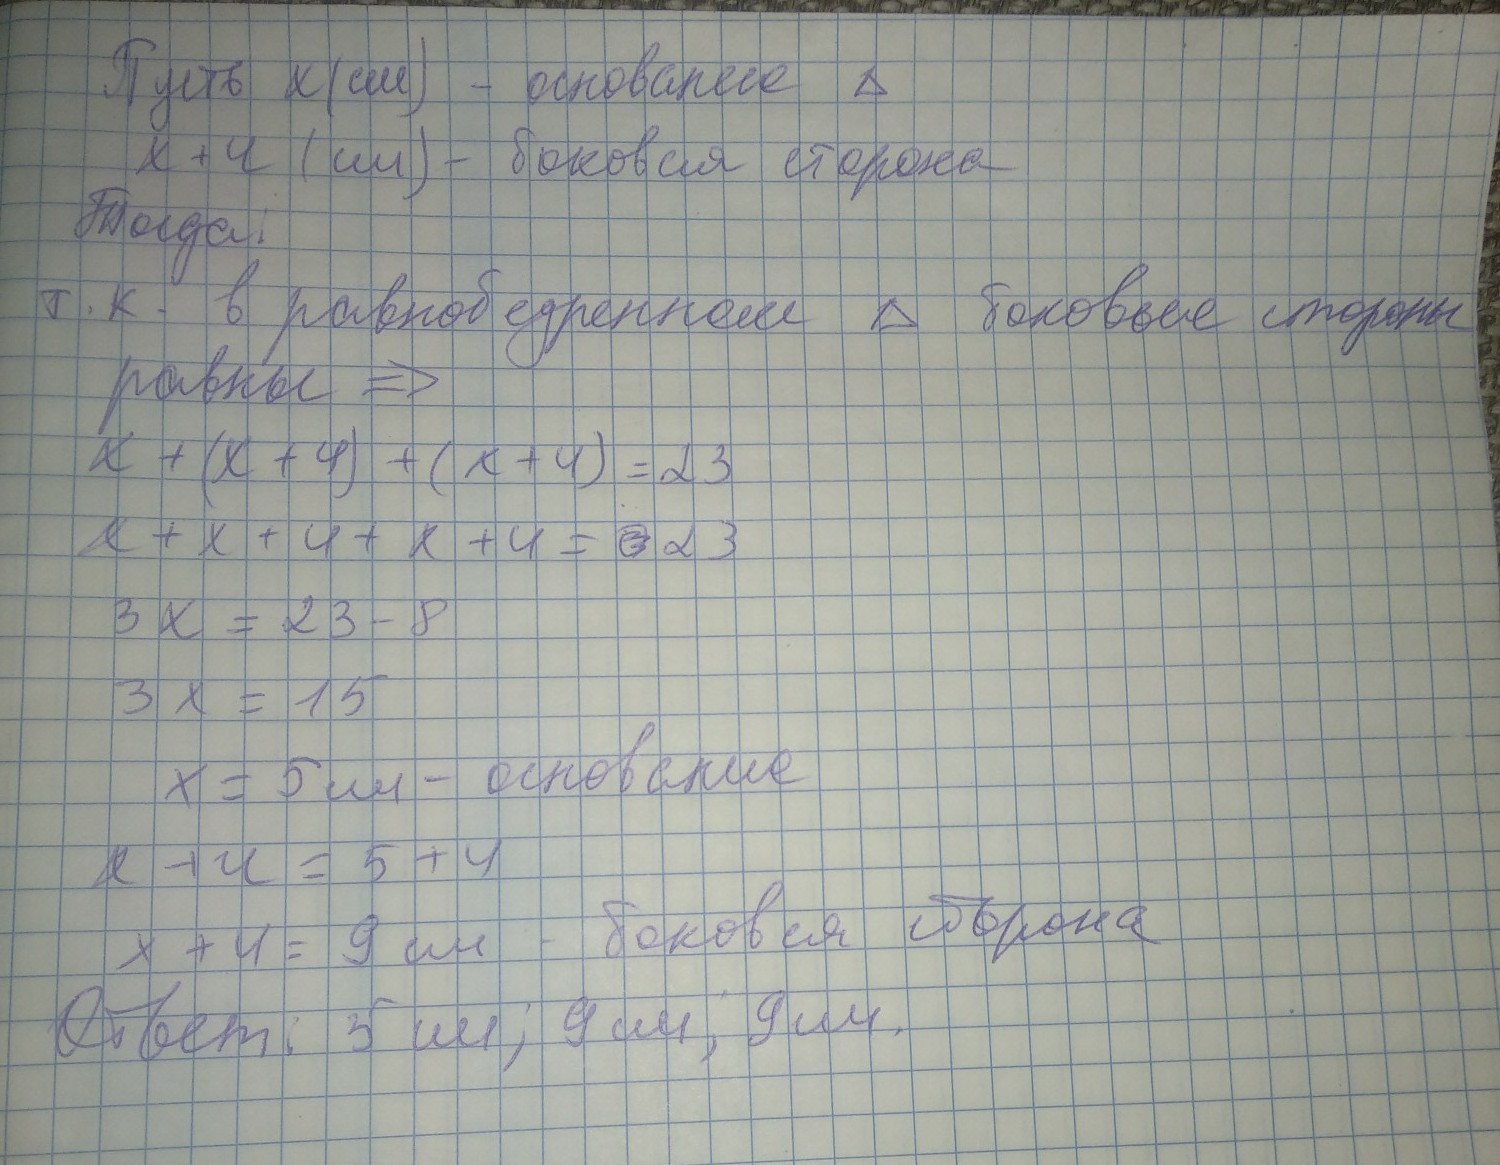 Пусть x(см) - основание △
x+4 (см) - боковая сторона
Тогда:
т.к. в равнобедренном △ боковые стороны
равны =>
x + (x + 4) + (x + 4) = 23
x + x + 4 + x + 4 = 23
3x = 23 - 8
3x = 15
x = 5 см - основание
x + 4 = 5 + 4
x + 4 = 9 см - боковая сторона
Ответ: 5 см; 9 см; 9 см.